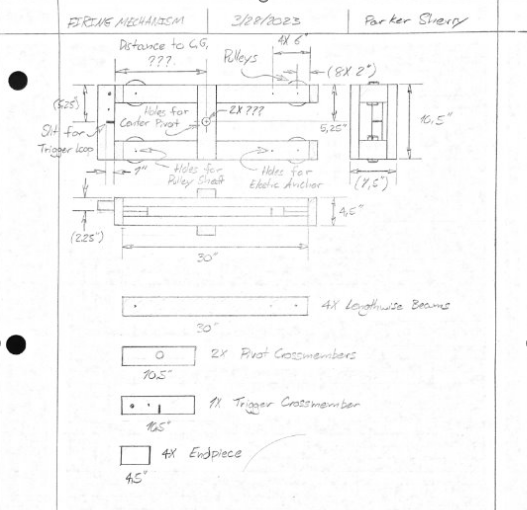 FIRING MECHANISM 3/28/2023 Parker Sherry
Distance to C.G,
???
Pulleys
4X 6"
(8X 2")
(5.25")
Holes for
Center Pivot
2X ???
5,25"
10,5"
Slit for
Trigger Loop
1"
Holes for
Pulley Shaft
Holes for
Elastic Anchor
(2.25")
4,5"
30"
4X Lengthwise Beams
30"
2X Pivot Crossmembers
10.5"
1X Trigger Crossmember
4X Endpiece
4.5"